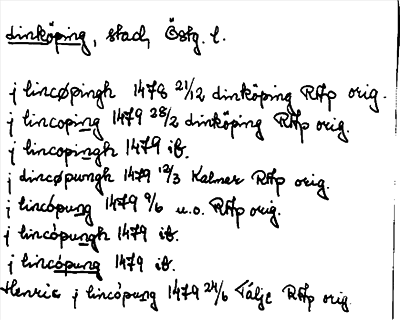 Linköping, stad, Östg. l.
j lincøpingh 1478 21/12 Linköping RAp orig.
j lincoping 1479 28/2 Linköping RAp orig.
j lincopingh 1479 ib.
j lincøpungh 1479 12/3 Kalmar RAp orig.
j lincópung 1479 9/6 u.o. RAp orig.
j lincópungh 1479 ib.
j lincópung 1479 ib.
Henric j lincópung 1479 24/6 Tälje RAp orig.